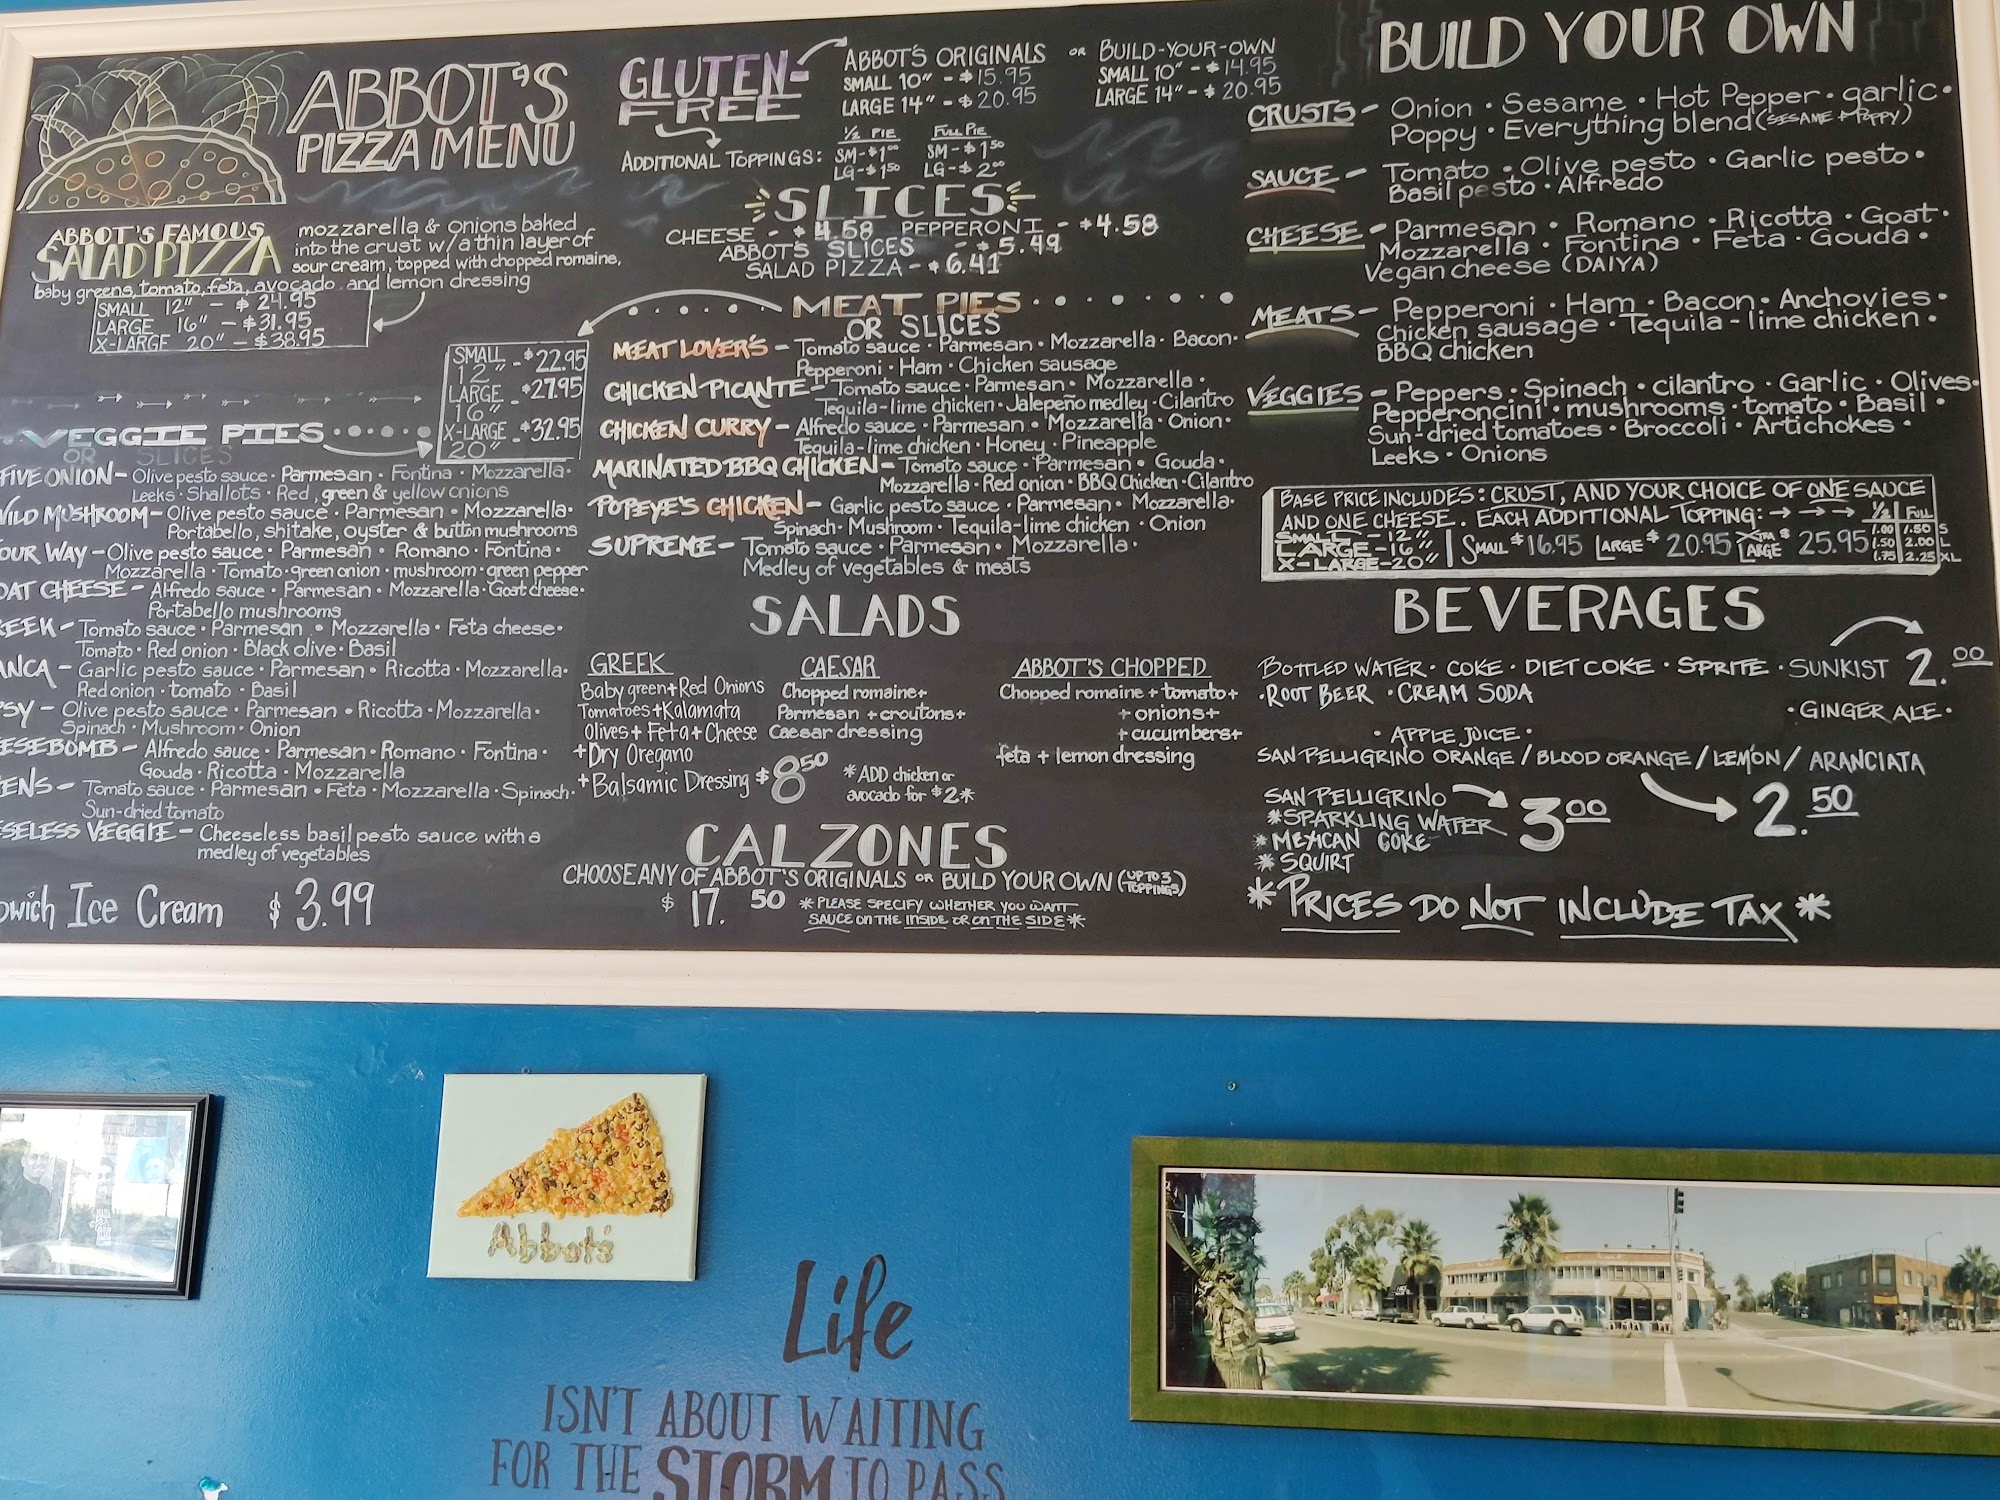 ABBOT'S
PIZZA MENU
ABBOT'S FAMOUS
SALAD PIZZA
mozzarella & onions baked
into the crust w/a thin layer of
sour cream, topped with chopped romaine,
baby greens, tomato, feta, avocado and lemon dressing
SMALL 12" - $24.95
LARGE 16" - $31.95
X-LARGE 20" - $38.95
SMALL 12" - $22.95
LARGE 16" - $27.95
X-LARGE 20" - $32.95
VEGGIE PIES
OR SLICES
FIVE ONION - Olive pesto sauce · Parmesan · Fontina · Mozzarella ·
Leeks · Shallots · Red, green & yellow onions
WILD MUSHROOM - Olive pesto sauce · Parmesan · Mozzarella ·
Portabello, shitake, oyster & button mushrooms
OUR WAY - Olive pesto sauce · Parmesan · Romano · Fontina ·
Mozzarella · Tomato · green onion · mushroom · green pepper
OAT CHEESE - Alfredo sauce · Parmesan · Mozzarella · Goat cheese ·
Portabello mushrooms
EEK - Tomato sauce · Parmesan · Mozzarella · Feta cheese ·
Tomato · Red onion · Black olive · Basil
NCA - Garlic pesto sauce · Parmesan · Ricotta · Mozzarella ·
Red onion · tomato · Basil
PSY - Olive pesto sauce · Parmesan · Ricotta · Mozzarella ·
Spinach · Mushroom · Onion
ESEBOMB - Alfredo sauce · Parmesan · Romano · Fontina ·
Gouda · Ricotta · Mozzarella
ENS - Tomato sauce · Parmesan · Feta · Mozzarella · Spinach ·
Sun-dried tomato
ESELESS VEGGIE - Cheeseless basil pesto sauce with a
medley of vegetables
wich Ice Cream $3.99
GLUTEN-
FREE
ABBOT'S ORIGINALS OR BUILD-YOUR-OWN
SMALL 10" - $15.95 SMALL 10" - $14.95
LARGE 14" - $20.95 LARGE 14" - $20.95
ADDITIONAL TOPPINGS:
1/2 PIE FULL PIE
SM - $1.00 SM - $1.50
LG - $1.50 LG - $2.00
SLICES
CHEESE - $4.58 PEPPERONI - $4.58
ABBOT'S SLICES - $5.49
SALAD PIZZA - $6.41
MEAT PIES
OR SLICES
MEAT LOVER'S - Tomato sauce · Parmesan · Mozzarella · Bacon ·
Pepperoni · Ham · Chicken sausage
CHICKEN PICANTE - Tomato sauce · Parmesan · Mozzarella ·
Tequila-lime chicken · Jalepeño medley · Cilantro
CHICKEN CURRY - Alfredo sauce · Parmesan · Mozzarella · Onion ·
Tequila-lime chicken · Honey · Pineapple
MARINATED BBQ CHICKEN - Tomato sauce · Parmesan · Gouda ·
Mozzarella · Red onion · BBQ Chicken · Cilantro
POPEYE'S CHICKEN - Garlic pesto sauce · Parmesan · Mozzarella ·
Spinach · Mushroom · Tequila-lime chicken · Onion
SUPREME - Tomato sauce · Parmesan · Mozzarella ·
Medley of vegetables & meats
SALADS
GREEK
Baby green + Red Onions
Tomatoes + Kalamata
Olives + Feta + Cheese
+ Dry Oregano
+ Balsamic Dressing
CAESAR
Chopped romaine +
Parmesan + croutons +
Caesar dressing
ABBOT'S CHOPPED
Chopped romaine + tomato +
+ onions +
+ cucumbers +
feta + lemon dressing
$8.50
*ADD chicken or
avocado for $2*
CALZONES
CHOOSE ANY OF ABBOT'S ORIGINALS OR BUILD YOUR OWN (UP TO 3 TOPPINGS)
$17.50
*PLEASE SPECIFY WHETHER YOU WANT
SAUCE ON THE INSIDE OR ON THE SIDE*
BUILD YOUR OWN
CRUSTS - Onion · Sesame · Hot Pepper · garlic ·
Poppy · Everything blend (SESAME + POPPY)
SAUCE - Tomato · Olive pesto · Garlic pesto ·
Basil pesto · Alfredo
CHEESE - Parmesan · Romano · Ricotta · Goat ·
Mozzarella · Fontina · Feta · Gouda ·
Vegan cheese (DAIYA)
MEATS - Pepperoni · Ham · Bacon · Anchovies ·
Chicken sausage · Tequila-lime chicken ·
BBQ chicken
VEGGIES - Peppers · Spinach · cilantro · Garlic · Olives ·
Pepperoncini · mushrooms · tomato · Basil ·
Sun-dried tomatoes · Broccoli · Artichokes ·
Leeks · Onions
BASE PRICE INCLUDES: CRUST, AND YOUR CHOICE OF ONE SAUCE
AND ONE CHEESE. EACH ADDITIONAL TOPPING:
1/2 FULL
1.00 1.50 S
1.50 2.00 L
1.75 2.25 XL
SMALL - 12"
LARGE - 16"
X-LARGE - 20"
SMALL $16.95 LARGE $20.95 XTRA LARGE $25.95
BEVERAGES
BOTTLED WATER · COKE · DIET COKE · SPRITE · SUNKIST 2.00
· ROOT BEER · CREAM SODA
· GINGER ALE ·
· APPLE JUICE ·
SAN PELLIGRINO ORANGE / BLOOD ORANGE / LEMON / ARANCIATA
2.50
SAN PELLIGRINO
*SPARKLING WATER
*MEXICAN COKE
*SQUIRT
3.00
*PRICES DO NOT INCLUDE TAX*
Abbot's
Life
ISN'T ABOUT WAITING
FOR THE STORM TO PASS